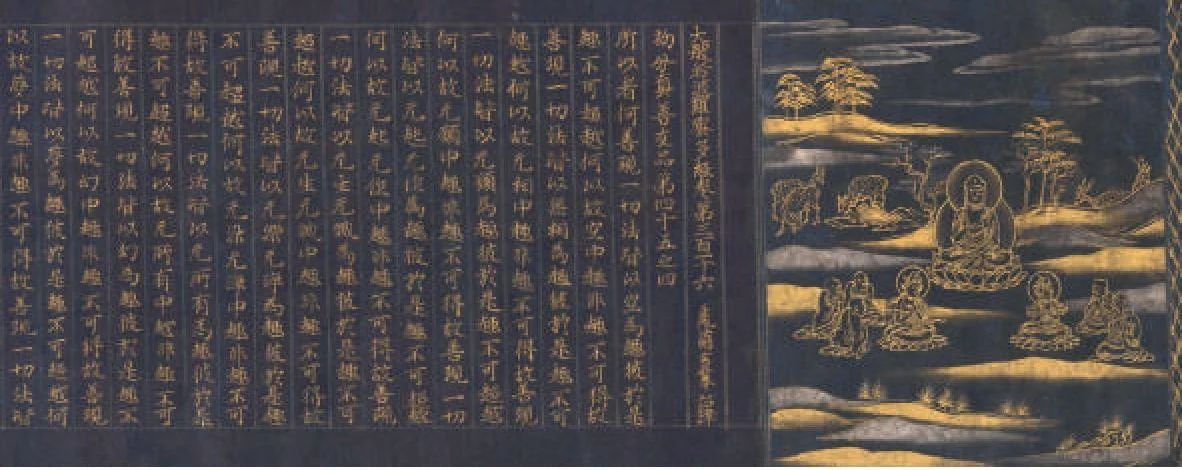 大般若波羅蜜多經卷第三百十六
初分真善友品第四十五之四
所以者何善現一切法皆以空為趣彼於是
趣不可超越何以故空中趣非趣不可得故
善現一切法皆以无相為趣彼於是趣不可
超越何以故无相中趣非趣不可得故善現
一切法皆以无願為趣彼於是趣不可超越
何以故无願中趣非趣不可得故善現一切
法皆以无起无作為趣彼於是趣不可超越
何以故无起无作中趣非趣不可得故善現
一切法皆以无生无滅為趣彼於是趣不可
超越何以故无生无滅中趣非趣不可得故
善現一切法皆以无染无淨為趣彼於是趣
不可超越何以故无染无淨中趣非趣不可
得故善現一切法皆以无所有為趣彼於是
趣不可超越何以故无所有中趣非趣不可
得故善現一切法皆以幻為趣彼於是趣不
可超越何以故幻中趣非趣不可得故善現
一切法皆以夢為趣彼於是趣不可超越何
以故夢中趣非趣不可得故善現一切法皆